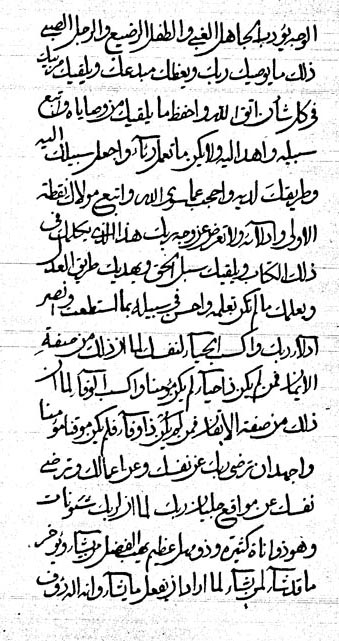 الوصية يؤدب الجاهل الغبي والطفل الرضيع والرجل الصبي
ذلك ما يوصيك ربك ويعظك مبدعك ويلقيك مربيك
في كل شأن اتق الله واحفظ ما يلقيك من وصاياه واتبع
سبيله واهد اليه ولا يكن ما تعمل رئاء واجعل سبيلك اليه
وطريقك لديه واحتجب عما سوى الله واتبع مولاك نقطة
الاولى وادلائه ولا تعرض عن وجه ربك هذا الذي يكلمك في
ذلك الكتاب ويلقيك سبل الحق ويهديك طريق العدل
ويعلمك ما لم تكن تعلمه واحسن في سبيله بما استطعت وانصر
ادلاء ربك واكسب الحياء لنفسك لما ان ذلك من صفة
الايمان فمن لم يكن ذا حياء لم يكن مؤمنا واكسب الوفا لما ان
ذلك من صفة الايمان فمن لم يكن ذا وفاء فلم يكن موقنا مؤمنا
واجهد ان ترضى ربك عن نفسك وعن اعمالك وترضى
نفسك عن مواقع تجليات ربك لما ان لربك شئونات
وهو ذو اناة كثيرة وذو مهل عظيم يهب الفضل من يشاء ويؤخر
ما قد شاء لمن يشاء لما اراد ان يفعل ما يشاء وانه اله رؤف